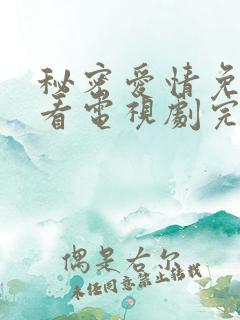 秘密愛情免
看電視劇完
偶是右尔
未经同意禁止转载